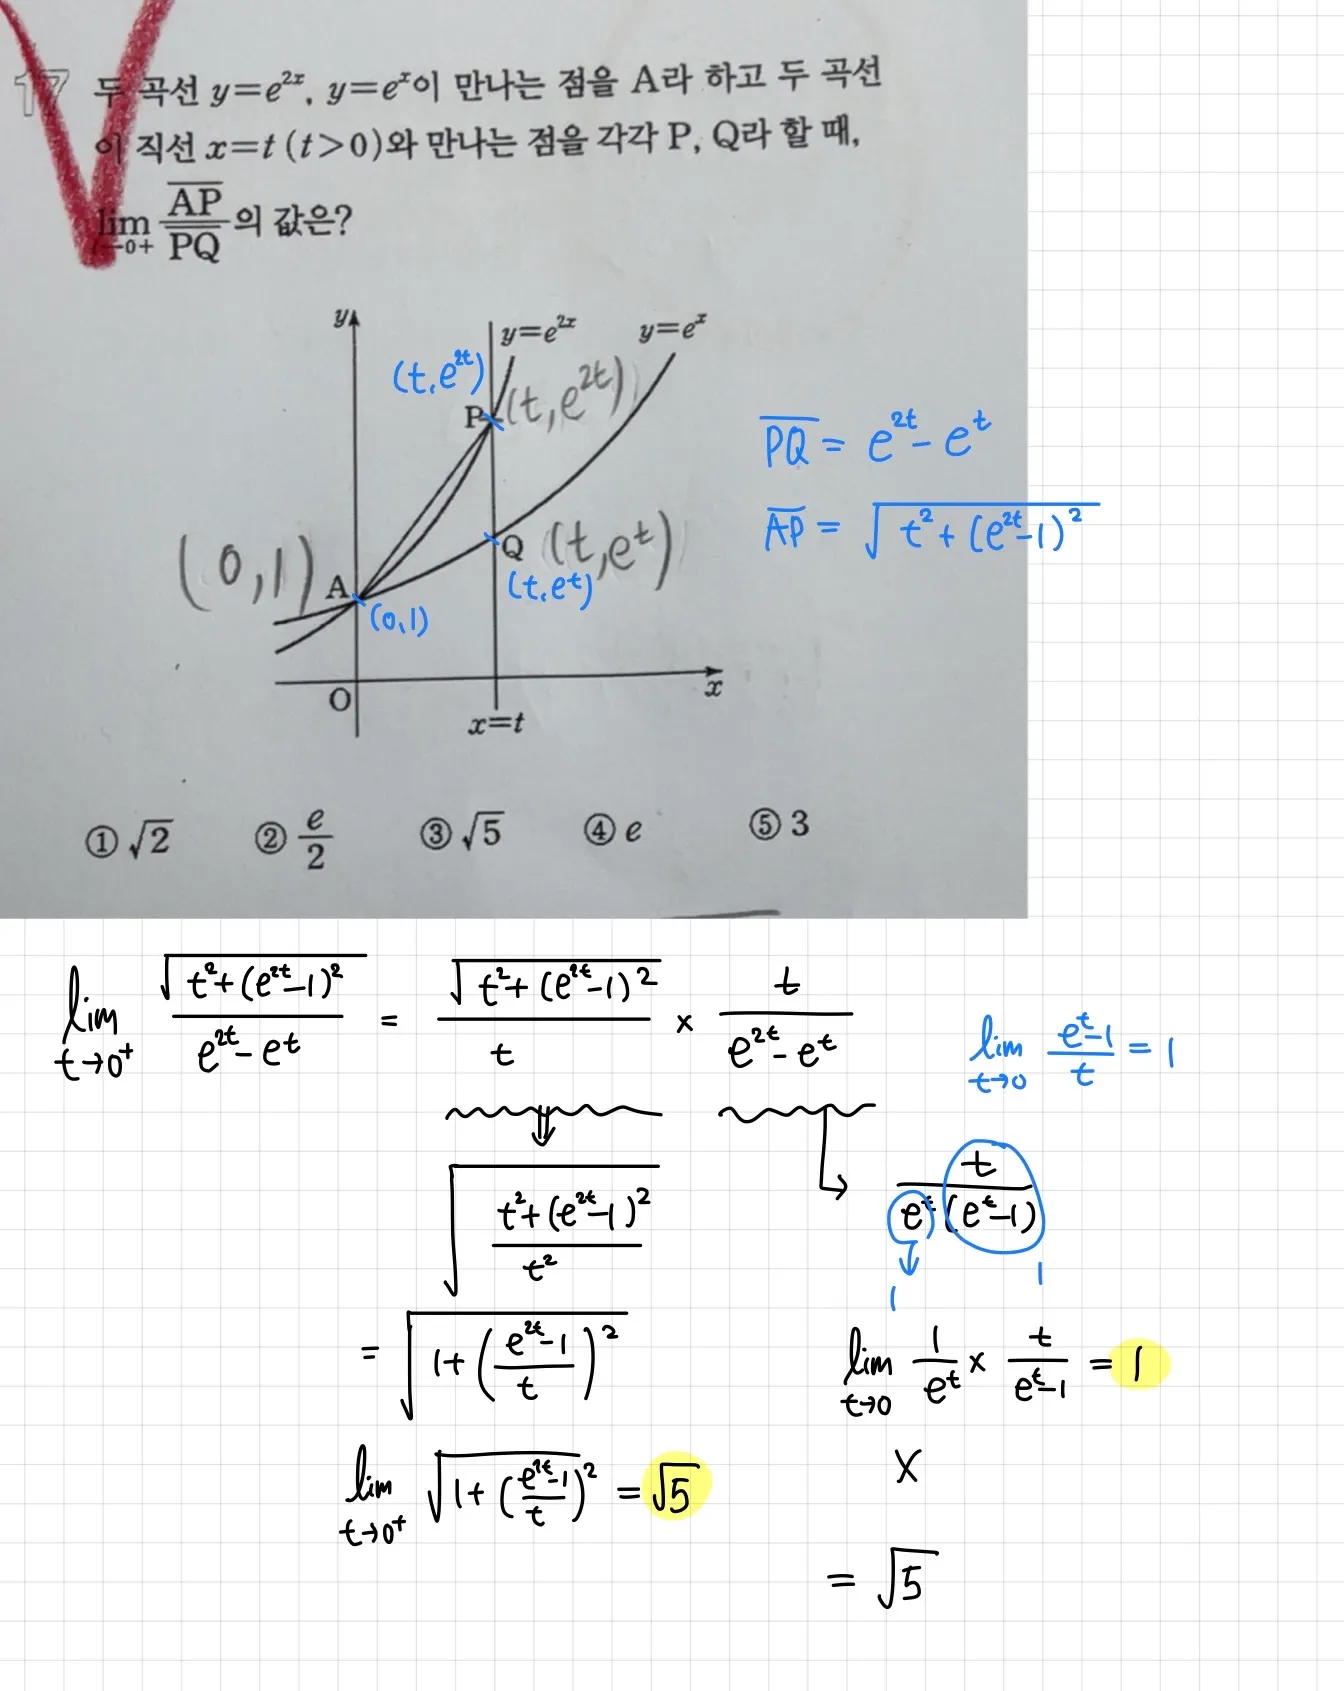 17 두 곡선 y=e^{2x}, y=e^x이 만나는 점을 A라 하고 두 곡선
이 직선 x=t (t>0)와 만나는 점을 각각 P, Q라 할 때,
lim_{t→0+} \overline{AP}/\overline{PQ}의 값은?
y
y=e^{2x} y=e^x
(t, e^{2t})
P (t, e^{2t})
\overline{PQ} = e^{2t} - e^t
\overline{AP} = √(t²+(e^{2t}-1)²)
(0,1) A (0,1)
Q (t, e^t)
(t, e^t)
O x
x=t
① √2 ② e/2 ③ √5 ④ e ⑤ 3
lim_{t→0⁺} √(t²+(e^{2t}-1)²)/(e^{2t}-e^t) = √(t²+(e^{2t}-1)²)/t × t/(e^{2t}-e^t)
lim_{t→0} (e^t-1)/t = 1
⇓
√((t²+(e^{2t}-1)²)/t²)
t/(e^t(e^t-1))
1 1
= √(1+((e^{2t}-1)/t)²)
lim_{t→0} 1/e^t × t/(e^t-1) = 1
lim_{t→0⁺} √(1+((e^{2t}-1)/t)²) = √5
×
= √5